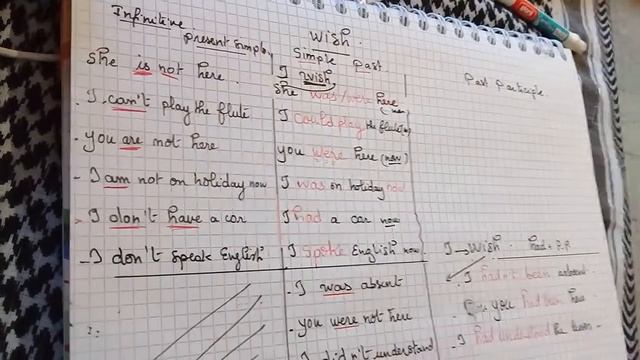 Infinitive
present simple
she is not here.
. I can't play the flute
. you are not here
- I am not on holiday now
- I don't have a car
- I don't speak English
Wish
Simple past
I wish
she was/were here
I could play the flute
you were here (now)
I was on holiday now
I had a car now
I spoke English now
- I was absent
- you were not here
I didn't understand
Past Participle
I wish had + P.P
. I hadn't been absent
you had been here
- I had understood the lesson